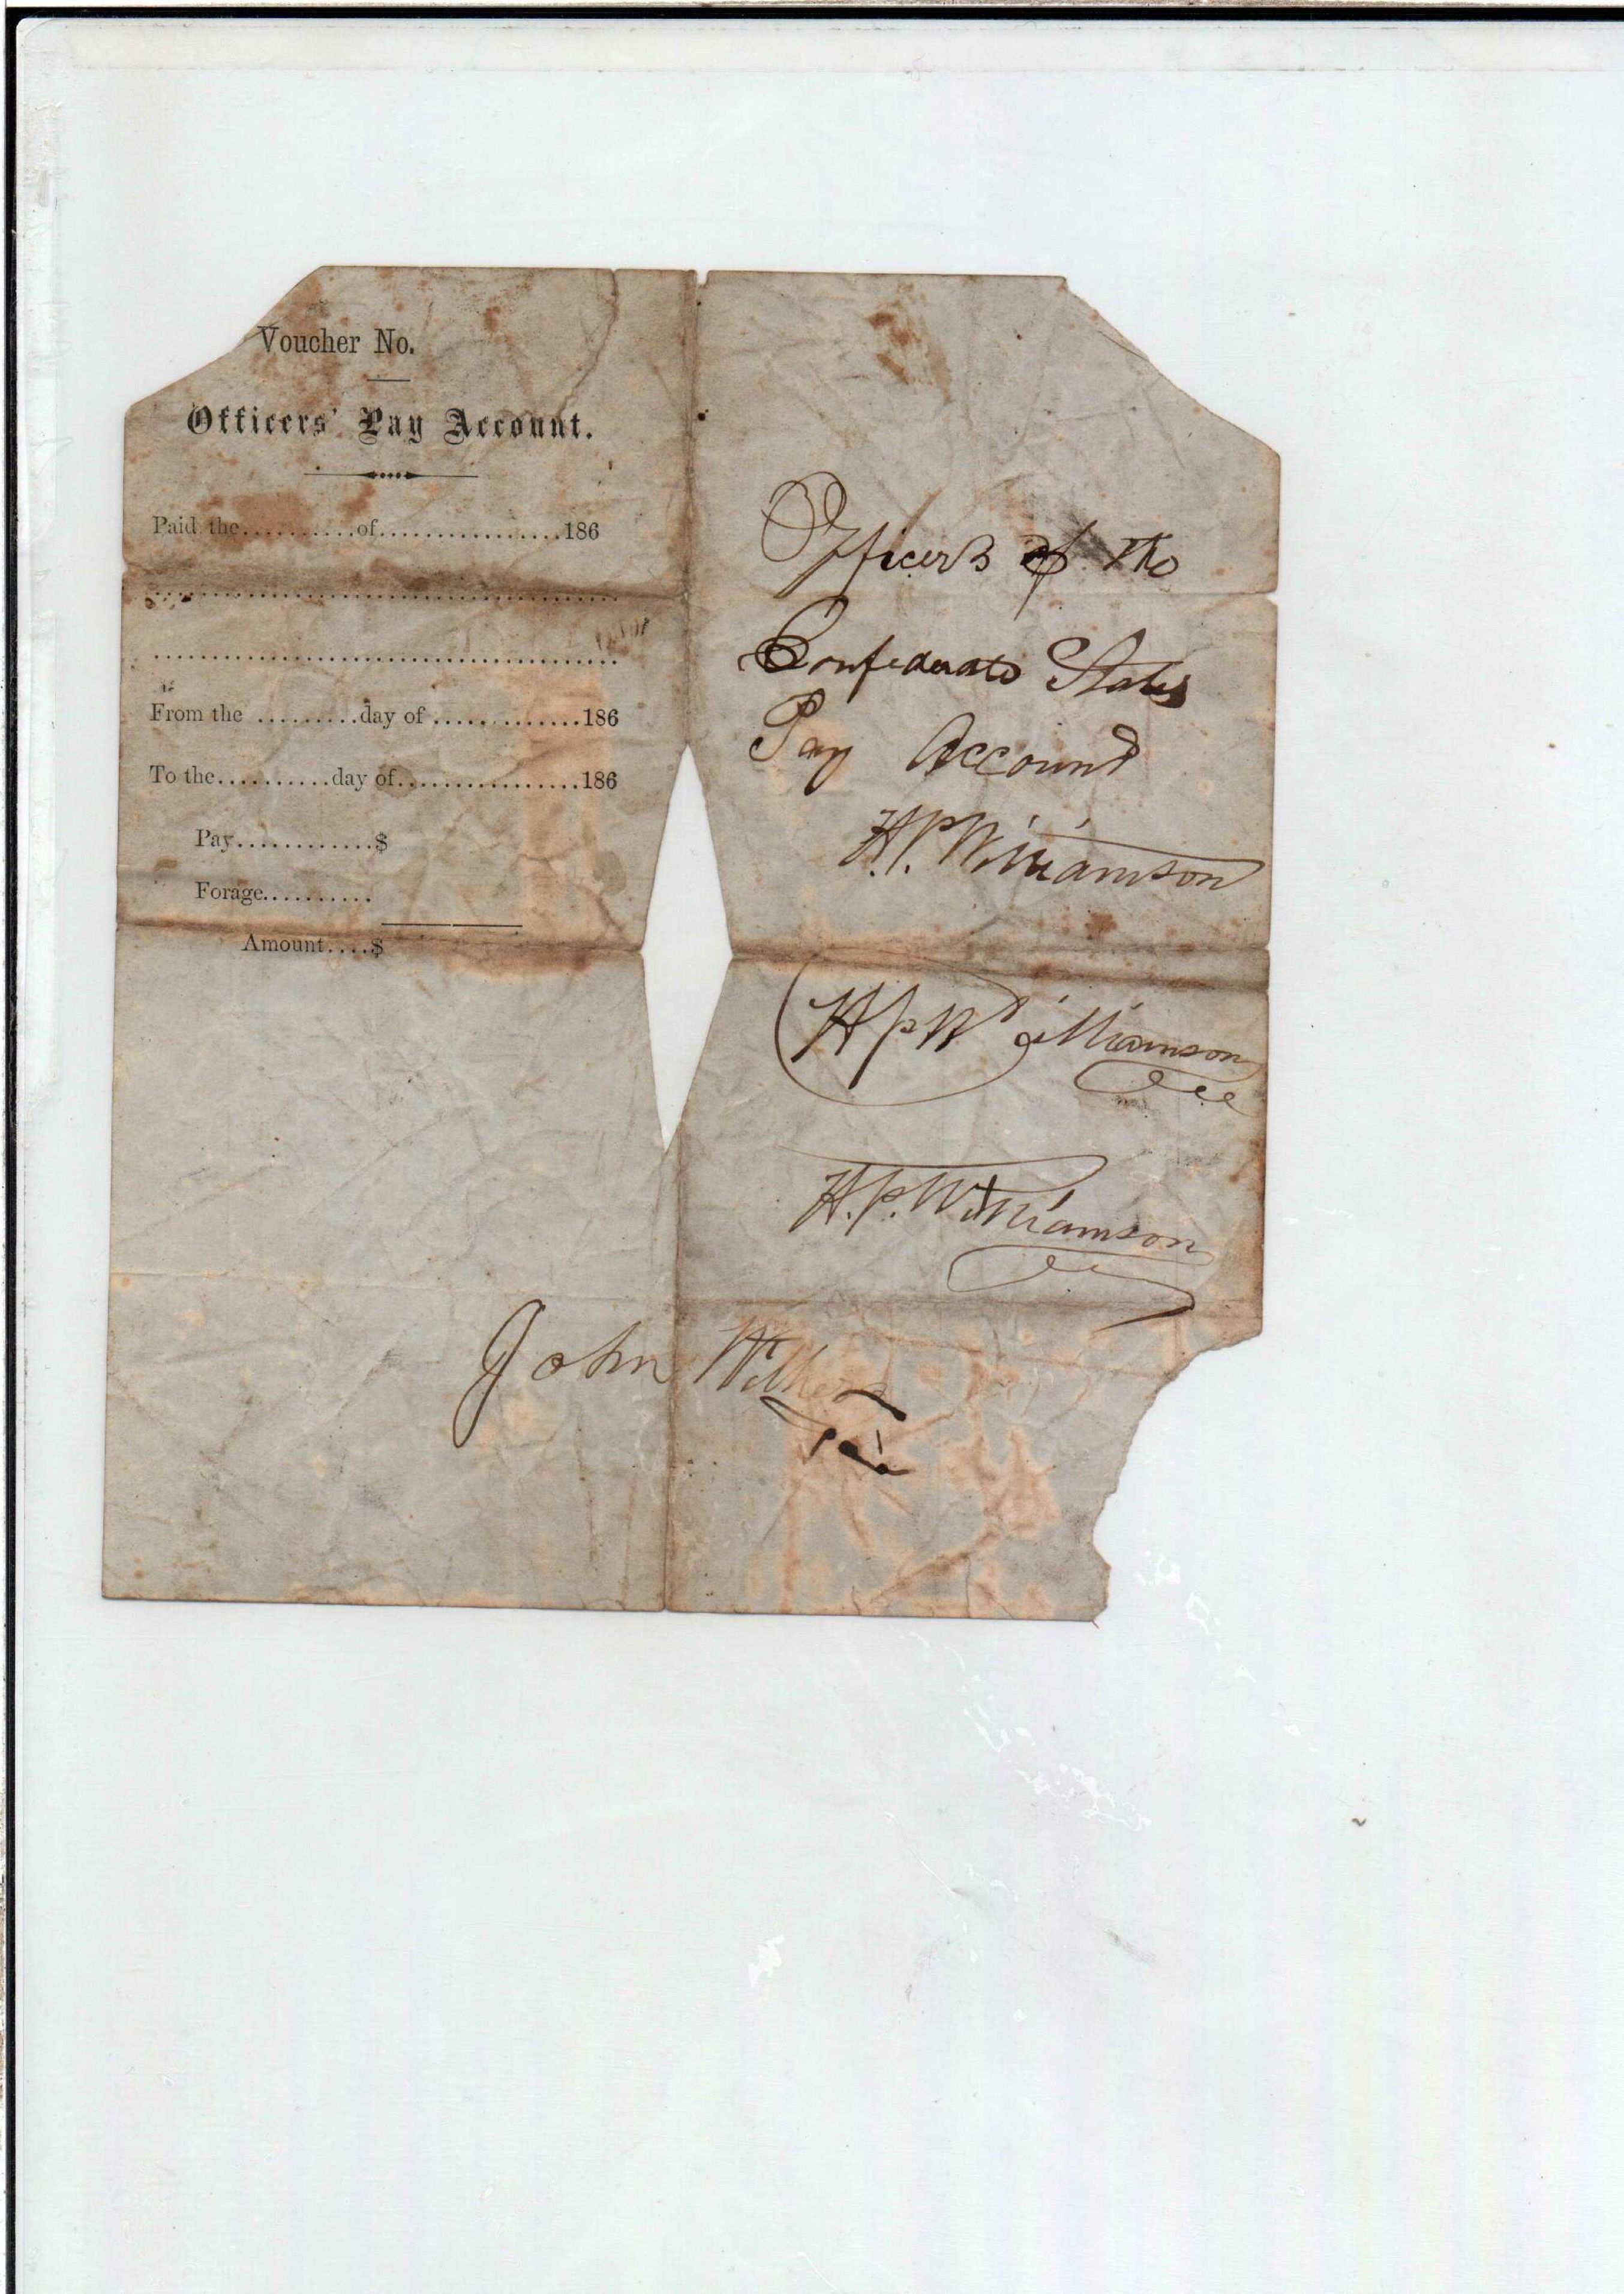 Voucher No.
Officers' Pay Account.
Paid the..........of................186
From the .........day of .............186
To the..........day of................186
Pay............$
Forage..........
Amount....$
Officers of the
Confederate States
Pay Account
H.P. Williamson
H P Williamson
H.P. Williamson
John